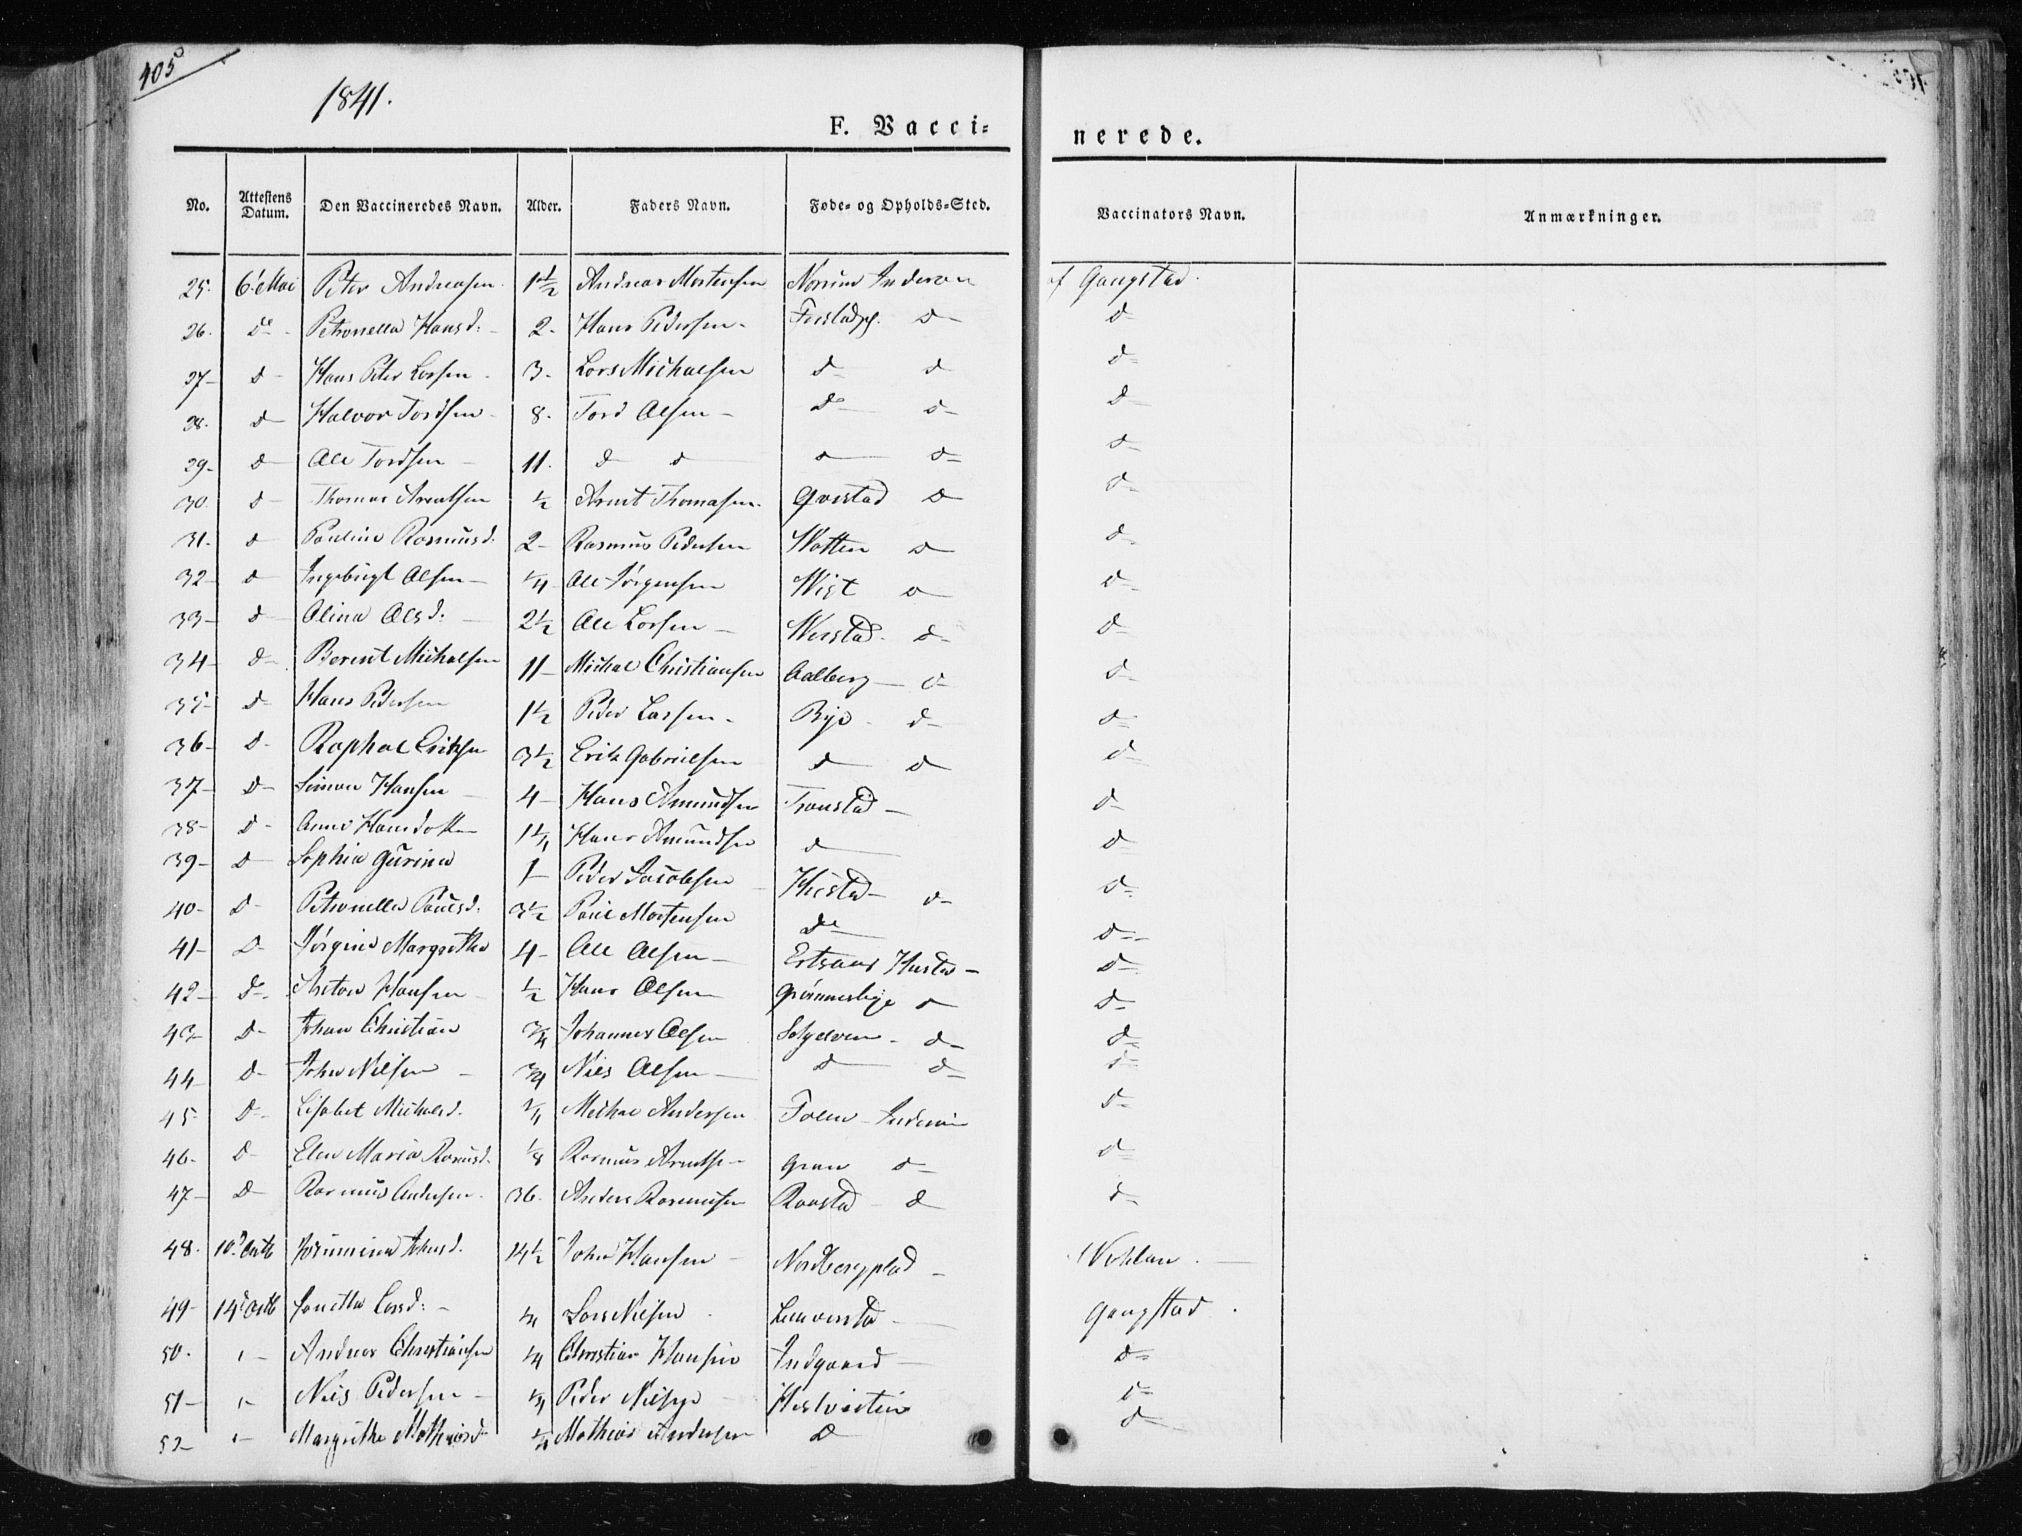 405
1841.
F. Vacci=
nerede.
No. Attestens Datum. Den Vaccineredes Navn. Alder. Faders Navn. Føde- og Opholds-Sted. Vaccinators Navn. Anmærkninger.
25. 6 Mai Peter Andreasen 1 1/2 Andreas Mortensen Inderøen Gangstad.
26. do Petronella Hansd: 2. Hans Pedersen do do
27 d Hans Peter Larsen 3. Lars Michalsen d d d
28. d Halvor Tordsen 8. Tord Olsen do d d
29 d Ole Tordsen 11. d d d d d
30. d Thomas Arentsen 1/2 Arent Thomasen Qvistad d d
31. d Pauline Rasmusd. 2 Rasmus Pedersen Watten d d
32 d Ingebrigt Olsen 1/4 Ole Jørgensen Wist d d
33 d Olina Olsd. 2 1/2 Ole Larsen d d
34 d Berent Michalsen 11 Michal Christiansen Aalberg d d
35 d Hans Pedersen 1 1/2 Peder Larsen Rye d d
36 d Raphael Eriksen 3 1/2 Erik Gabrielsen d d d
37 d Simon Hansen 4 Hans Amundsen Tronstad d
38 d Anne Hansdotter Hans Amundsen d d
39 d Sophia Gurina 1 Peder Jacobsen Hustad d d
40 d Petronella Paulsd. 3 1/2 Paul Mortensen do d
41 d Jørgine Margrethe 4 Ole Olsen Hustad d
42 d Anton Hansen 1/2 Hans Olsen d d
43 d Johan Christian 3/4 Johannes Olsen d d
44 d John Nilsen 3/4 Niels Olsen d d d
45 d Lisabet Michalsd. Michal Andersen Inderøen d
46. d Elen Maria Rasmusd. 1/8 Rasmus Arentsen Gran d d
47 d Rasmus Andersen 36. Anders Rasmussen Raastad d d
48. 10 Octb Johnsd. 14 1/2 John Hansen Nordbergplad
49 14 Octb Larsd: 1/4 Lars Nilsen Gangstad.
50. Andreas Christiansen 1/4 Christian Hansen Indgaard d
51 Niels Pedersen 1/4 Peder d
52 Margrethe Mathiasd 1/4 Mathias Andersen d d